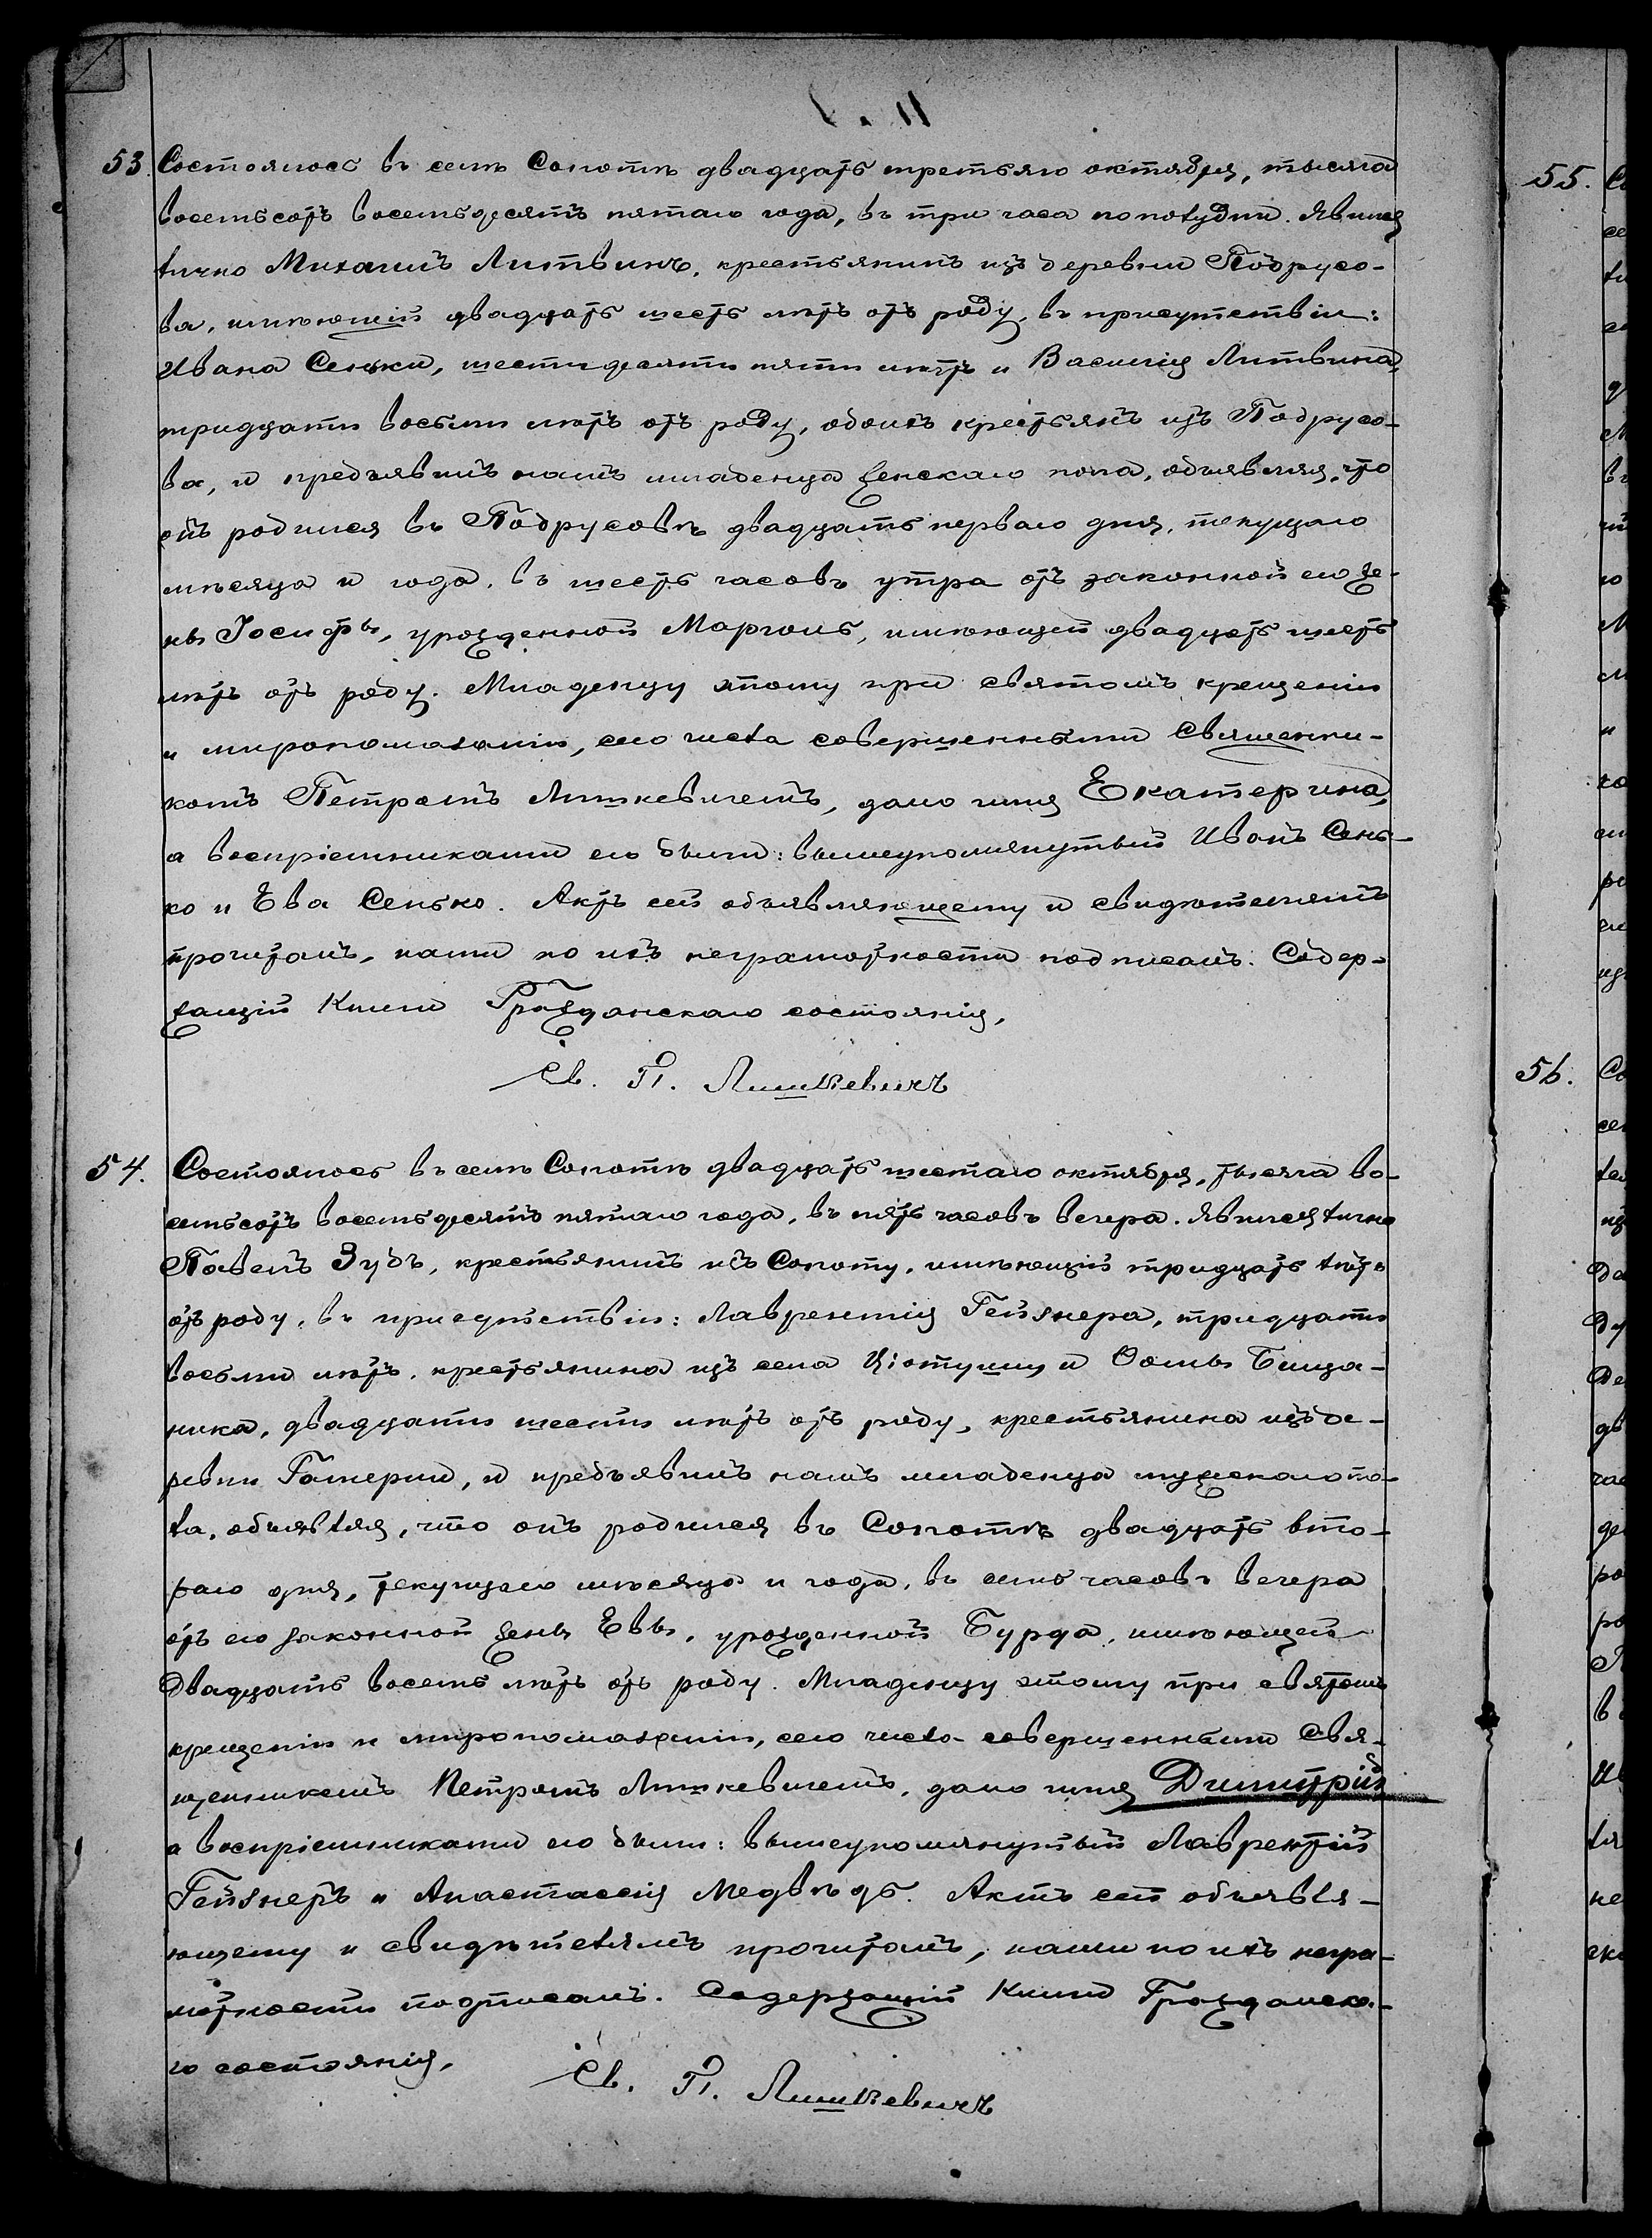 53. Состоялось въ селѣ Сопотѣ двадцать третьяго октября, тысяча
восемьсотъ восемьдесятъ пятаго года, въ три часа пополудни. Явился
лично Михаилъ Литвинъ, крестьянинъ изъ деревни Подрусо-
ва, имѣющій двадцать шесть лѣтъ отъ роду, въ присутствіи:
Ивана Сенька, шестидесяти пяти лѣтъ и Василія Литвина,
тридцати восьми лѣтъ отъ роду, обоихъ крестьянъ изъ Подрусо-
ва, и предъявилъ намъ младенца женскаго пола, объявляя, что
онъ родился въ Подрусовѣ двадцать перваго дня, текущаго
мѣсяца и года, въ шесть часовъ утра отъ законной его же-
ны Іосифы, урожденной Марголь, имѣющей двадцать шесть
лѣтъ отъ роду. Младенцу этому при святомъ крещеніи
и миропомазаніи, сего числа совершенными Священни-
комъ Петромъ Лишкевичемъ, дано имя Екатерина,
а воспріемниками его были: вышеупомянутый Иванъ Сень-
ко и Ева Сенько. Актъ сей объявляющему и свидѣтелямъ
прочитанъ, нами по ихъ неграмотности подписанъ. Содер-
жащій Книги Гражданскаго состоянія,
Св. П. Лишкевичъ
54. Состоялось въ селѣ Сопотѣ двадцать шестаго октября, тысяча во-
семьсотъ восемьдесятъ пятаго года, въ пять часовъ вечера. Явился лично
Павелъ Зубъ, крестьянинъ изъ Сопоту, имѣющій тридцать лѣтъ
отъ роду, въ присутствіи: Лаврентія Гейзнера, тридцати
восьми лѣтъ, крестьянина изъ села Ціотуши, и Ѳомы
двадцати шести лѣтъ отъ роду, крестьянина изъ де-
ревни Гамерни, и предъявилъ намъ младенца мужескаго по-
ла, объявляя, что онъ родился въ Сопотѣ двадцать вто-
раго дня, текущаго мѣсяца и года, въ семь часовъ вечера
отъ его законной жены Евы, урожденной Бурда, имѣющей
двадцать восемь лѣтъ отъ роду. Младенцу этому при святомъ
крещеніи и миропомазаніи, сего числа совершенными Свя-
щенникомъ Петромъ Лишкевичемъ, дано имя Димитрій
а воспріемниками его были: вышеупомянутый Лаврентій
Гейзнеръ и Анастасія Медвѣдь. Актъ сей объявля-
ющему и свидѣтелямъ прочитанъ, нами по ихъ негра-
мотности подписанъ. Содержащій Книги Гражданска-
го состоянія,
Св. П. Лишкевичъ
55.
56.